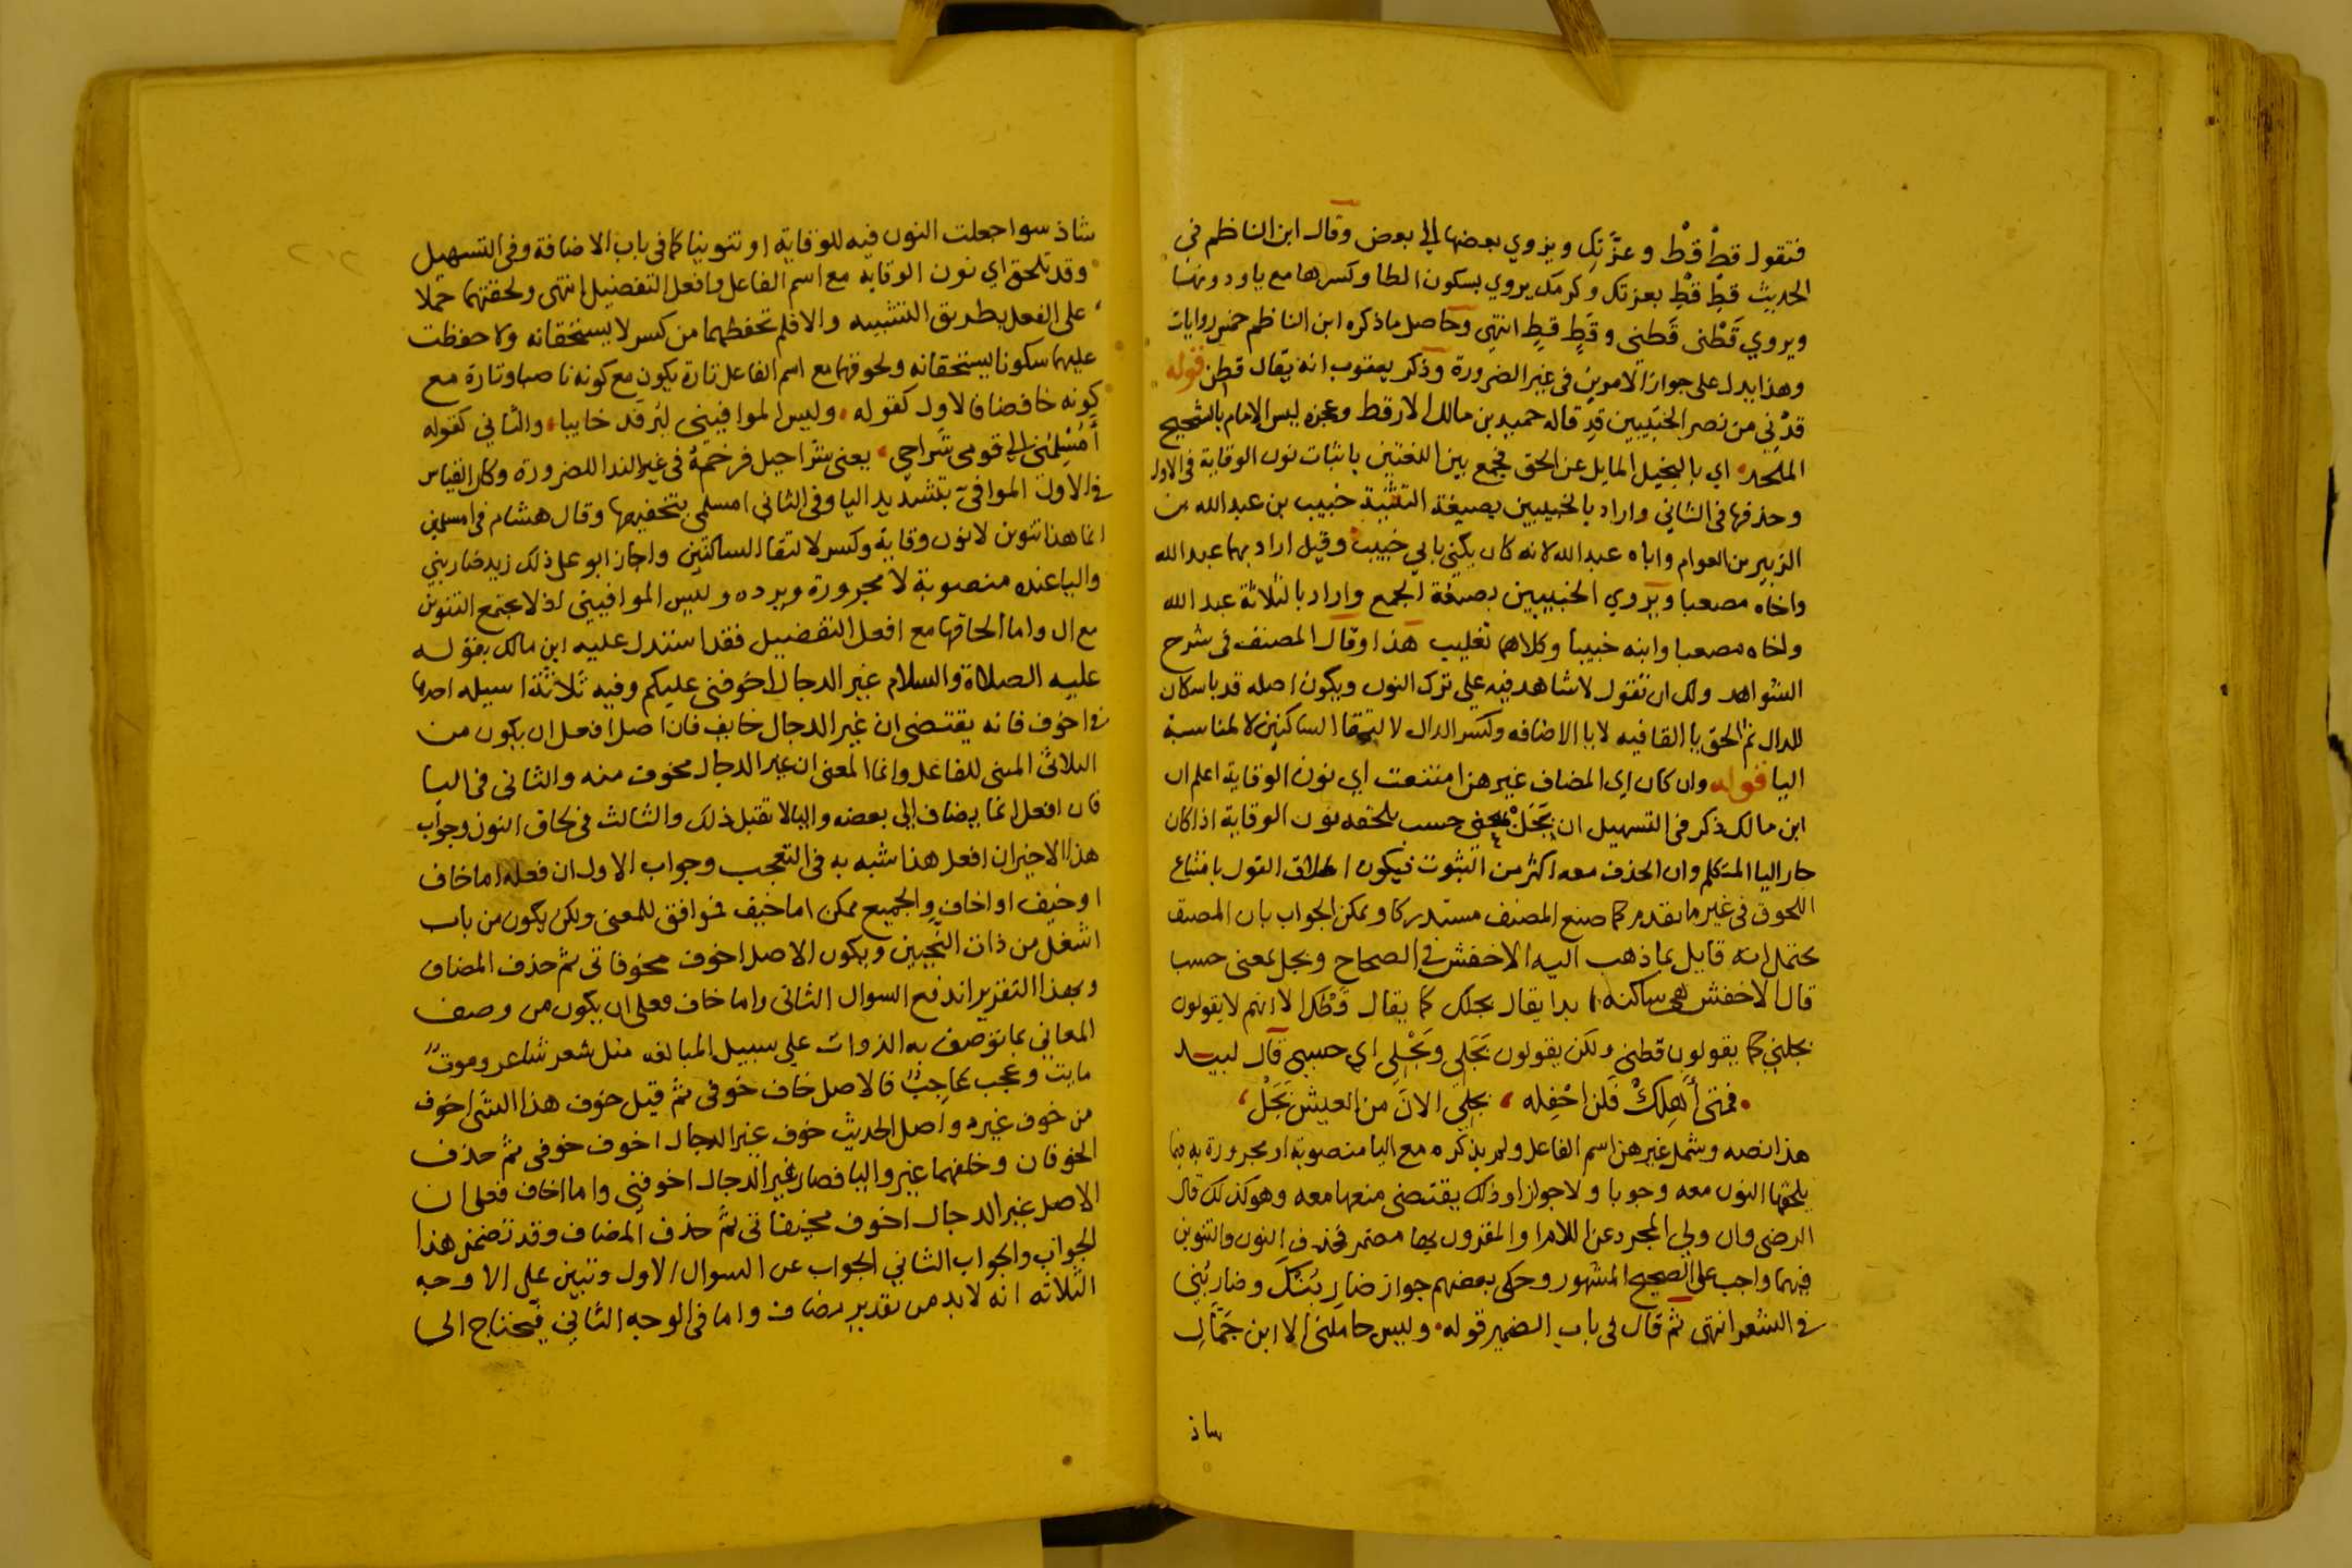 فتقول قطْ قطْ وعزّتك ويزوي بعضها الى بعض وقال ابن الناظم في
الحديث قطِ قطِ بعزتك وكرمك يروي بسكون الطا وكسرها مع ياء ودونها
ويروي قَطْنى قَطني وقَطٍ قطٍ انتهى وحاصل ماذكره ابن الناظم خمس روايات
وهذا يدل على جواز الامرين فى غير الضرورة وذكر يعقوب انه يقال قطن قوله
قدْني من نصر الخبيبين قدِ قاله حميد بن مالك الارقط وعجزه ليس الامام بالشحيح
الملحد اي بالبخيل المايل عن الحق فجمع بين اللغتين باثبات نون الوقاية فى الاول
وحذفها فى الثاني واراد بالخبيبين بصيغة التثنية خبيب بن عبدالله بن
الزبير بن العوام واباه عبدالله لانه كان يكني بابي خبيب وقيل اراد بهما عبدالله
واخاه مصعبا ويروي الخبيبين بصيغة الجمع واراد بالثلاثة عبدالله
واخاه مصعبا وابنه خبيبا وكلاهما تغليب هذا وقال المصنف في شرح
الشواهد ولك ان تقول لا شاهد فيه على ترك النون ويكون اصله قد باسكان
الدال ثم الحق يا القافيه لا يا الاضافه وكسر الدال لالتقا الساكنين لا لمناسبة
اليا قوله وان كان اي المضاف غير هن امتنعت اي نون الوقاية اعلم ان
ابن مالك ذكر فى التسهيل ان بَجَلْ بمعنى حسب تلحقه نون الوقاية اذا كان
جار اليا المتكلم وان الحذف معه اكثر من الثبوت فيكون اطلاق القول بامتناع
اللحوق في غير ما تقدم كما صنع المصنف مستدركا ويمكن الجواب بان المصنف
يحتمل انه قايل بما ذهب اليه الاخفش في الصحاح وبجل بمعنى حسب
قال الاخفش هي ساكنه ابدا يقال بجلك كما يقال قَطْك الا انهم لا يقولون
بجلني كما يقولون قطني ولكن يقولون بَجَلى وبَجْلى اي حسبى قال لبيد
فمتى أَهلِكْ فلن احْفِله ، بجلى الان من العيش بَجَلْ
هذا نصه وشمل غير هن اسم الفاعل ولم يذكره مع اليا منصوبة او مجرورة به فيما
يلحقها النون معه وجوبا ولا جوازا وذلك يقتضى منعها معه وهو كذلك قال
الرضى وان ولي المجرد عن اللام او المقرون بها مضمر فحذف النون والتنوين
فيهما واجب على الصحيح المشهور وحكى بعضهم جواز ضاربُنْكَ وضاربُني
في الشعر انتهى ثم قال فى باب الضمير قوله وليس حاملنى الا ابن حَمَّالِ
شاذ
شاذ سوا جعلت النون فيه للوقاية او تنوينا كما فى باب الاضافة وفى التسهيل
وقد تلحق اي نون الوقايه مع اسم الفاعل وافعل التفضيل انتهى ولحقتهما حملا
على الفعل بطريق التشبيه والا فلم تحفظهما من كسر لا يستحقانه ولا حفظت
عليهما سكونا يستحقانه ولحوقها مع اسم الفاعل تارة يكون مع كونه ناصبا وتارة مع
كونه خافضا فالاول كقوله وليس الموافيني ليرفد خايبا والثاني كقوله
أمُسْلِمُنى الى قومى شَراحي يعنى شراحيل فرخمهُ في غير الندا للضرورة وكان القياس
فى الاول الموافيّ بتشديد اليا وفى الثاني امسلمى بتخفيفها وقال هشام فى امسلمنى
انما هذا تنوين لا نون وقاية وكسر لالتقا الساكنين واجاز ابو على ذلك زيد ضاربنى
واليا عنده منصوبة لا مجرورة ويرده وليس الموافيني اذ لا يجتمع التنوين
مع ال واما الحاقها مع افعل التفضيل فقد استدل عليه ابن مالك بقوله
عليه الصلاة والسلام غير الدجال اخوفنى عليكم وفيه ثلاثة اسيله احدها
فى اخوف فانه يقتضى ان غير الدجال خايف فان اصل افعل ان يكون من
الثلاثى المبنى للفاعل وانما المعنى ان غير الدجال مخوف منه والثاني فى اليا
فان افعل انما يضاف الى بعضه واليا لا تقبل ذلك والثالث فى لحاق النون وجواب
هذا الاخير ان افعل هنا شبه به فى التعجب وجواب الاول ان فعله اما خاف
او خيف او اخاف والجميع ممكن اما خيف فموافق للمعنى ولكن يكون من باب
اشغل من ذات النحيين ويكون الاصل اخوف مخوفاتى ثم حذف المضاف
وبهذا التقرير اندفع السوال الثانى واما خاف فعلى ان يكون من وصف
المعاني بما توصف به الذوات على سبيل المبالغه مثل شعر شاعر وموت
مايت وعجب عاجب فالاصل خاف خوفى ثم قيل خوف هذا الشى اخوف
من خوف غيره واصل الحديث خوف غير الدجال اخوف خوفى ثم حذف
الخوفان وخلفهما غير واليا فصار غير الدجال اخوفنى واما اخاف فعلى ان
الاصل غير الدجال اخوف مخيفاتى ثم حذف المضاف وقد تضمن هذا
الجواب والجواب الثاني الجواب عن السوال الاول وتبين على الاوجه
الثلاثه انه لا بد من تقدير مضاف واما فى الوجه الثاني فيحتاج الى